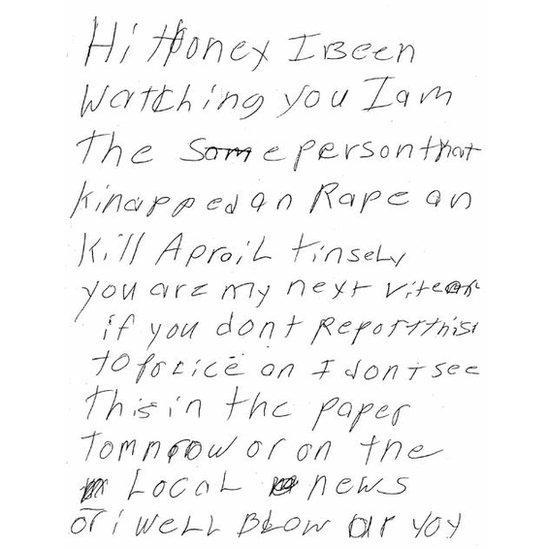 Hi Honey I Been
Watching you I am
the Same person that
kinapped an Rape an
Kill Aproil tinsely
you are my next vitem
if you dont Report this
to police an I dont see
this in the paper
tomorrow or on the
Local news
or i well Blow up you